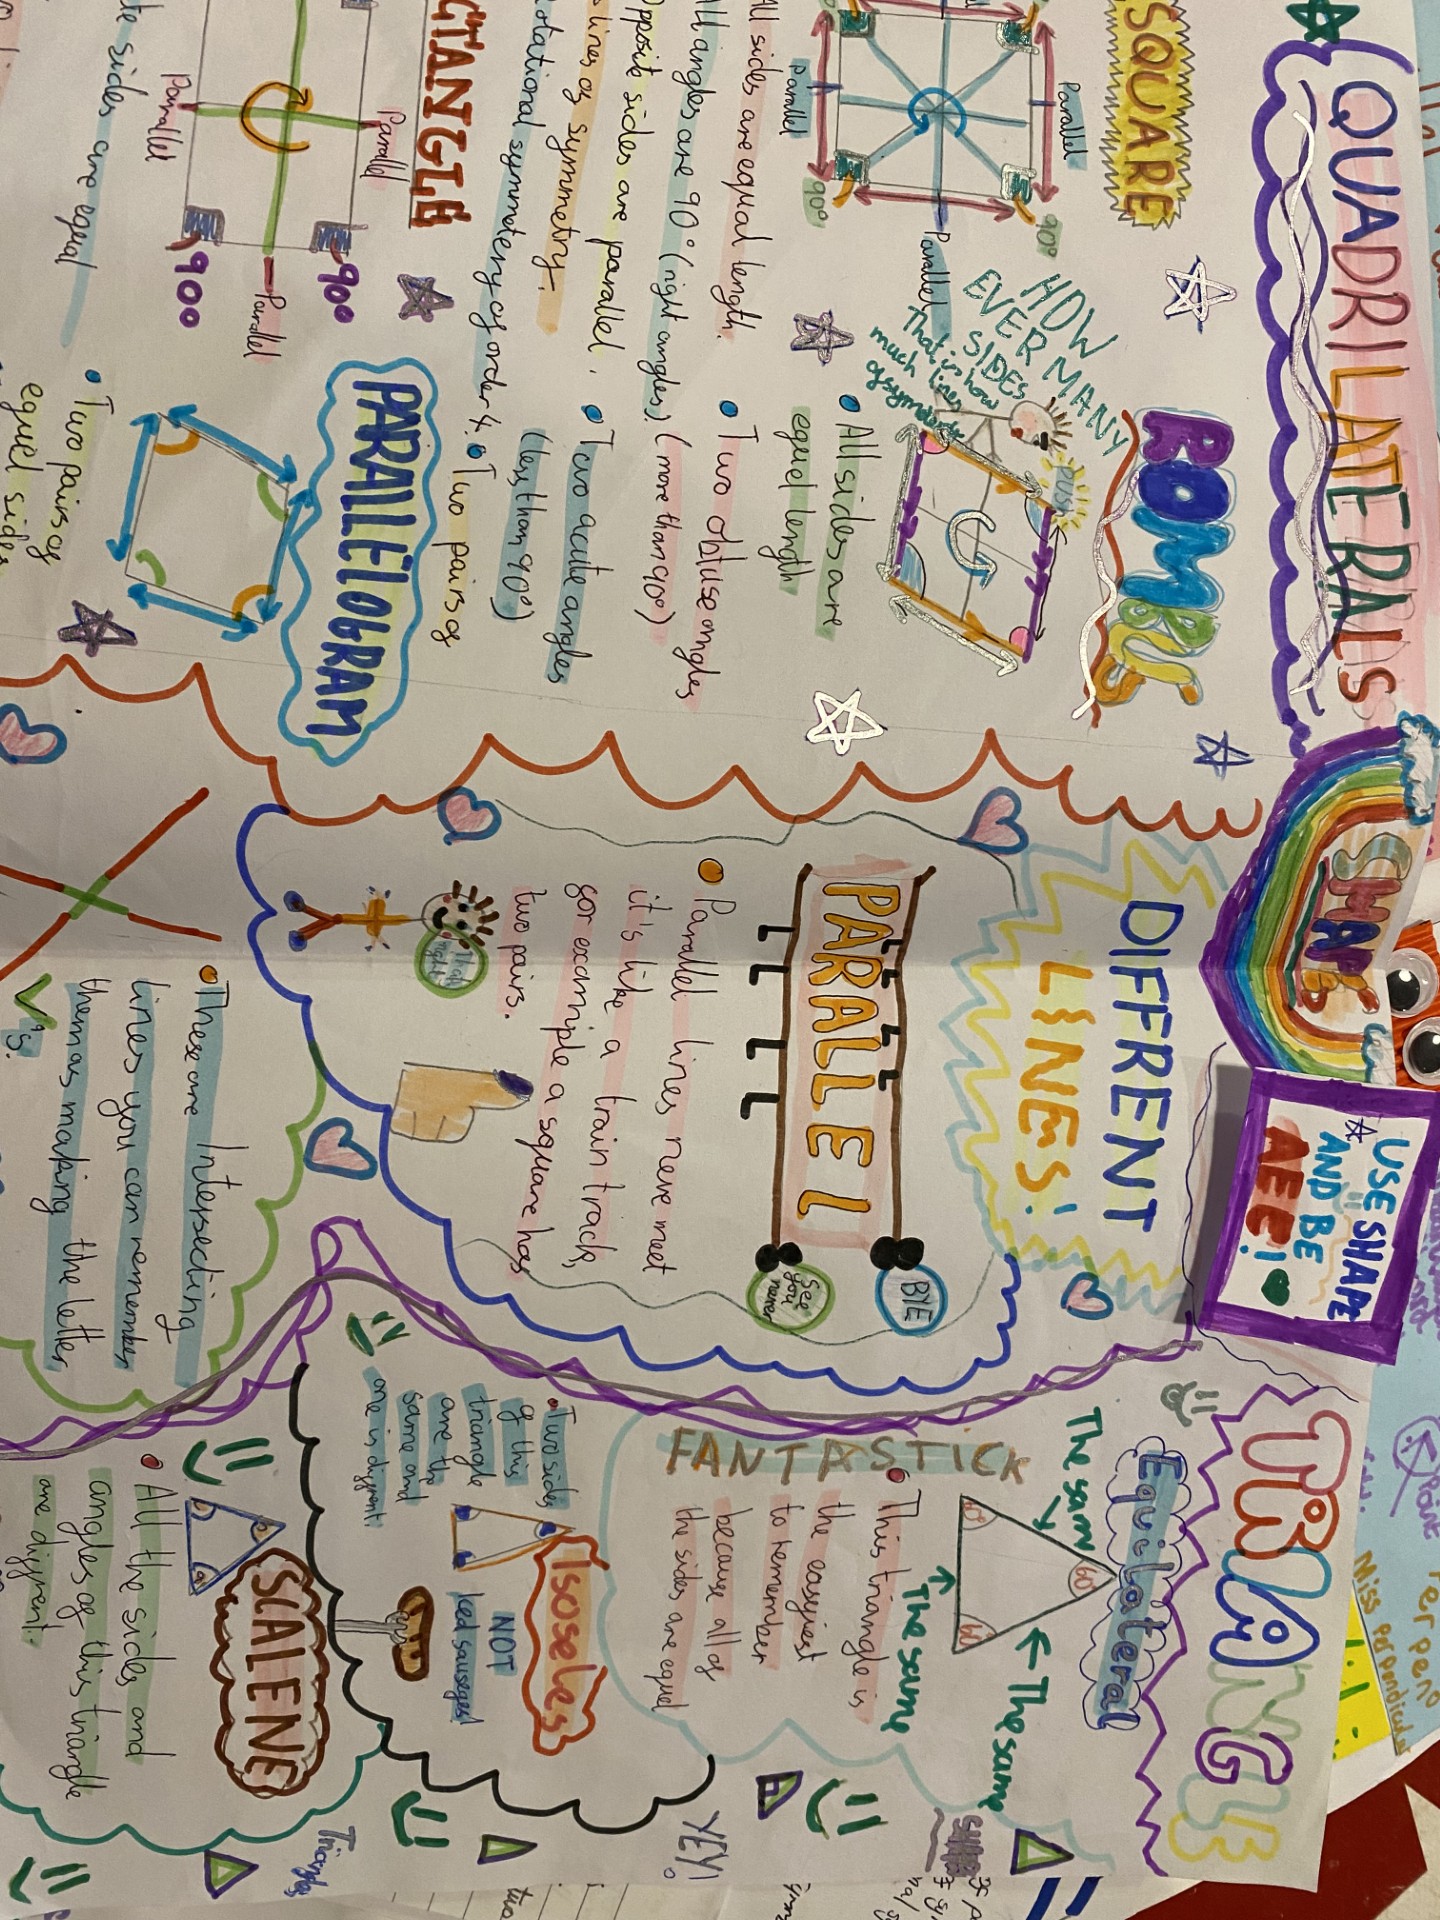 QUADRILATERALS
SQUARE
Parallel
90°
Parallel
90°
Parallel
All sides are equal length.
All angles are 90° (right angles)
Opposite sides are parallel.
lines of symmetry.
rotational symmetery of order 4
HOW
EVER MANY
SIDES
That is how
much lines
of symmetry
ROMBUS
PUSH
All sides are
equel length
Two obtuse angles
(more than 90°)
Two acute angles
(less than 90°)
Two pairs of
CTANGLE
Parallel
Parallel
Parallel
900
900
sides are equal
PARALLELOGRAM
Two pairs of
equel sides
SHAPES
USE SHAPE
AND BE
AEE!
DIFFRENT
LINES!
PARALLEL
BYE
See
you
never
Parallel lines neve meet
it's like a train track,
for example a square has
two pairs.
That
right
These are Intersecting
lines you can remember
them as making the letter
X's.
TRIANGLE
Equilateral
The sam
The same
The same
60°
60°
60°
FANTASTICK
This triangle is
the easyiest
to remember
because all of
the sides are equel
Isoseles
Two sides
of this
triangle
are the
same and
one is diffrent.
NOT
Iced sauseges!
SCALENE
All the sides and
angles of this triangle
are diffrent.
YEY!
Triangles
Point
Per pend
Miss perpendicular